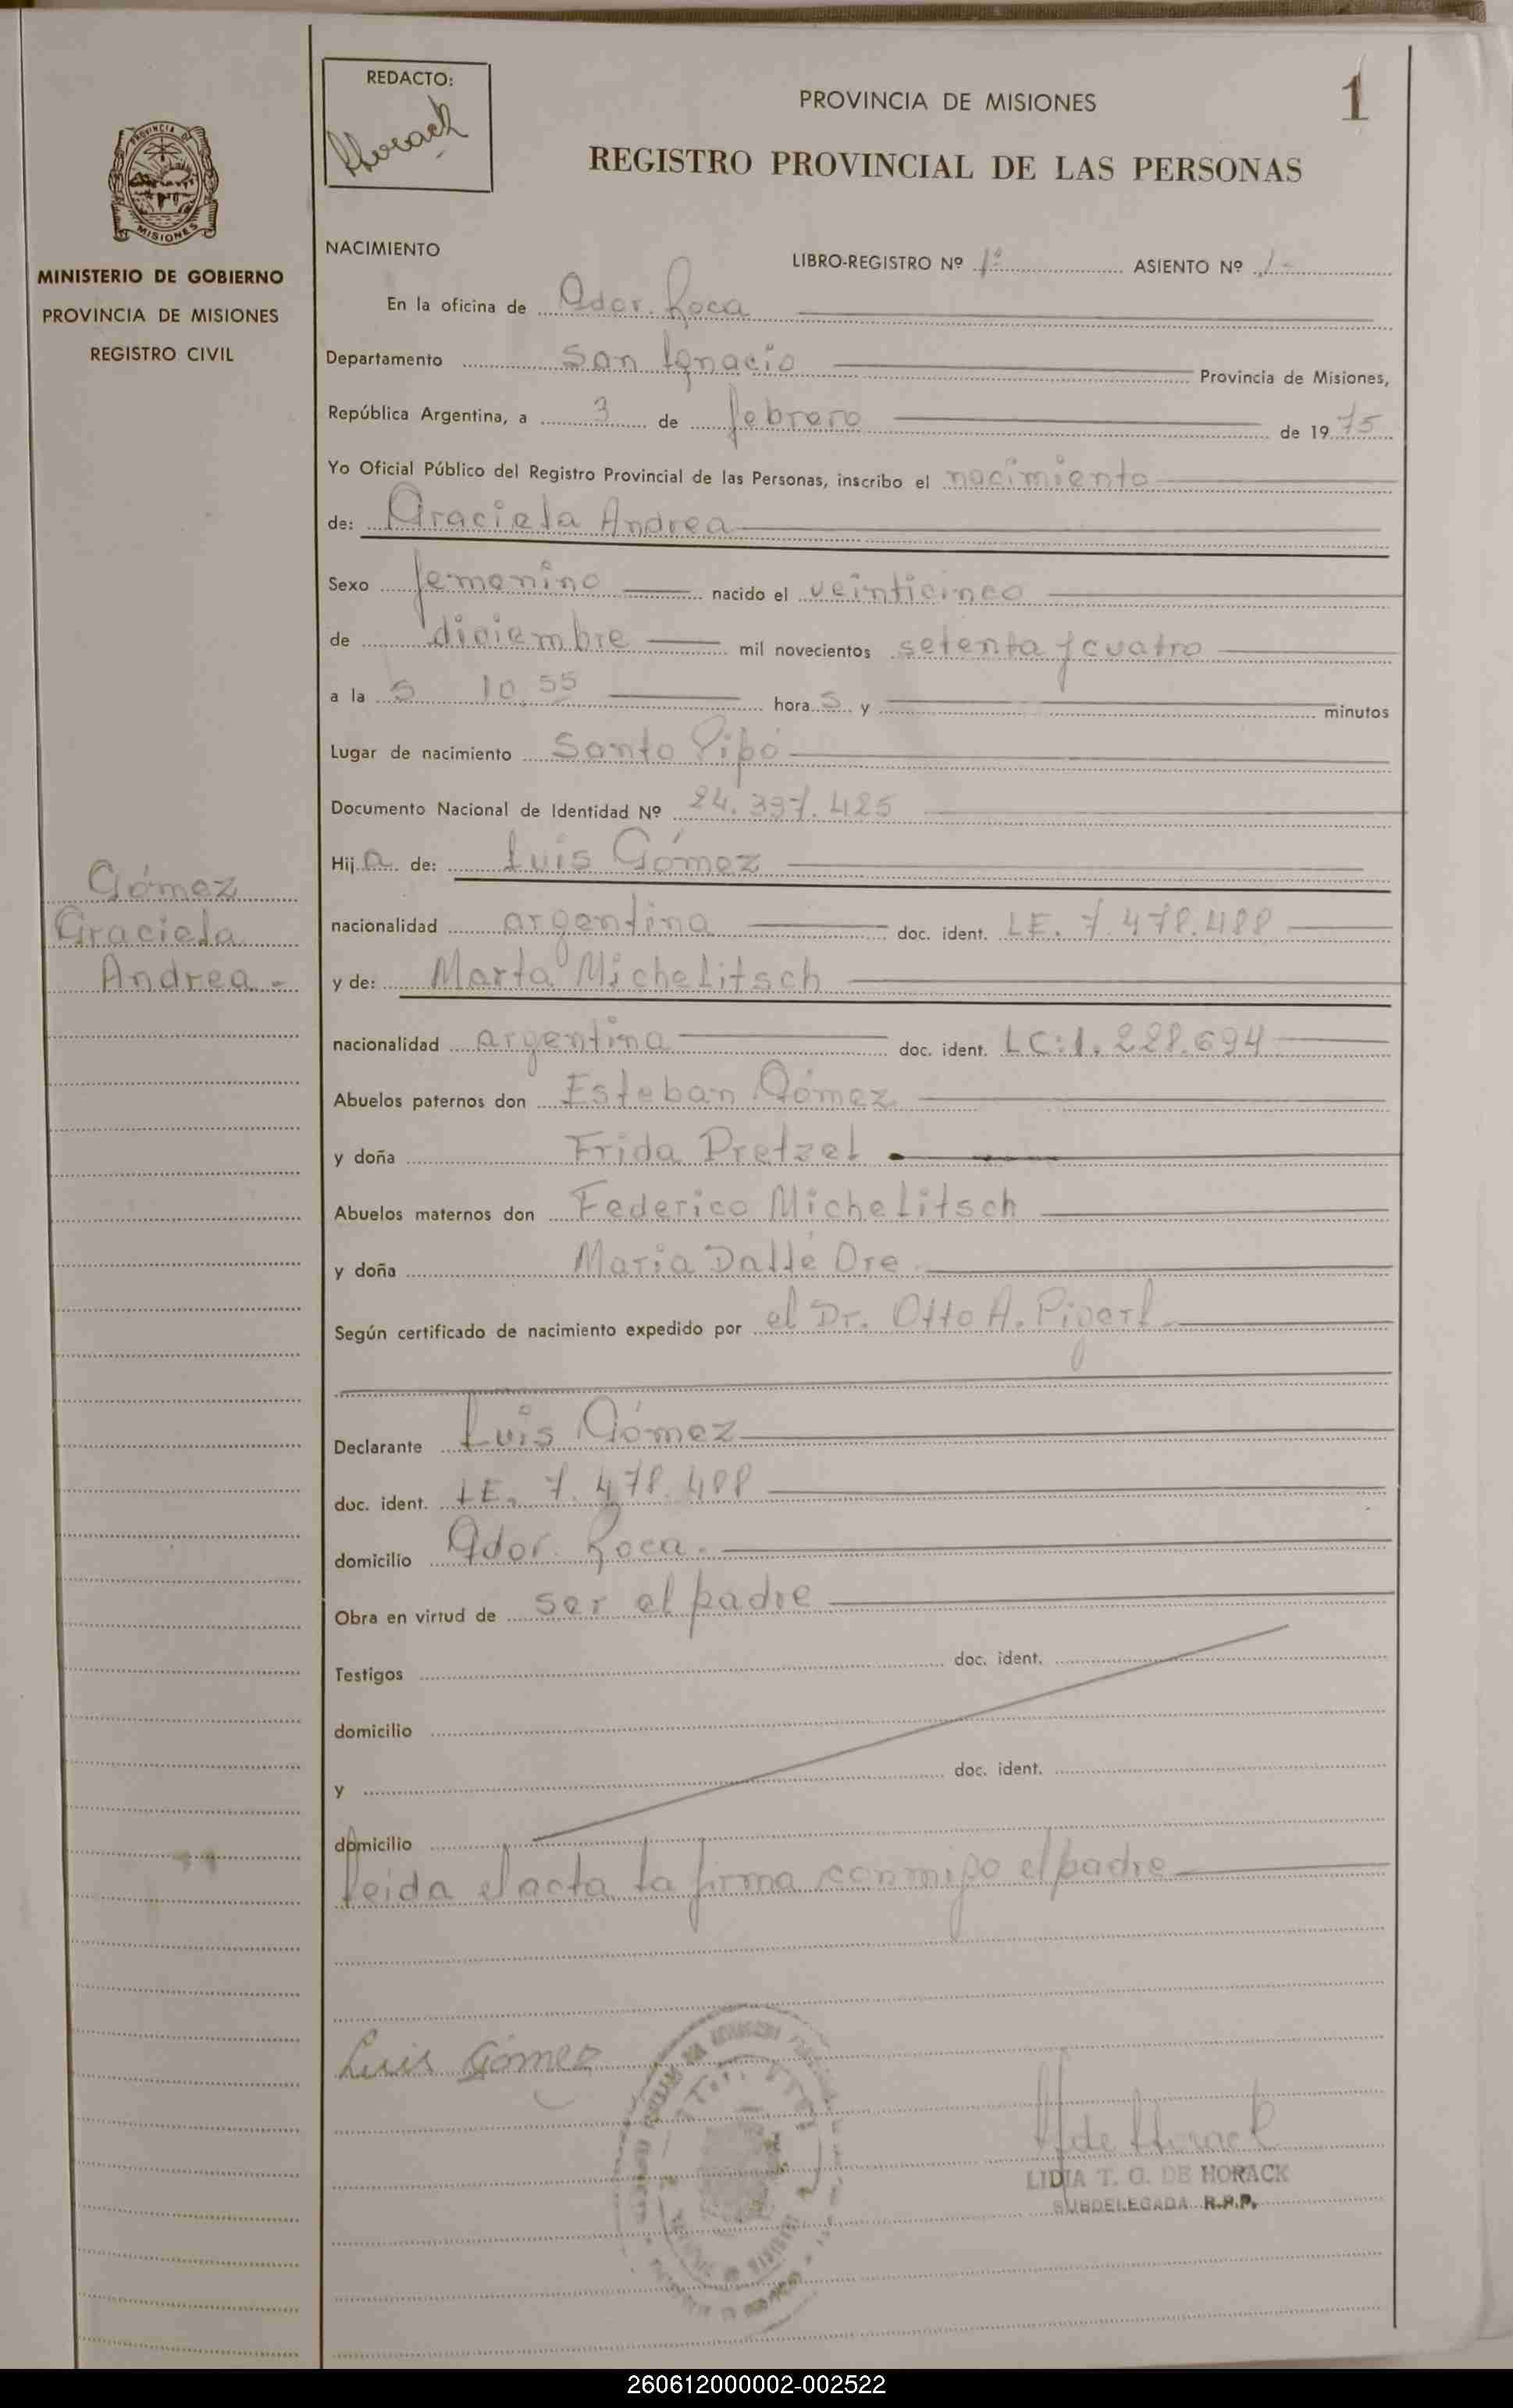 REDACTO:
Horack
1
PROVINCIA DE MISIONES
REGISTRO PROVINCIAL DE LAS PERSONAS
PROVINCIA DE
MISIONES
MINISTERIO DE GOBIERNO
PROVINCIA DE MISIONES
REGISTRO CIVIL
Gómez
Graciela
Andrea -
NACIMIENTO LIBRO-REGISTRO Nº 1º ASIENTO Nº 1-
En la oficina de Gdor. Roca
Departamento San Ignacio Provincia de Misiones,
República Argentina, a 3 de febrero de 1975
Yo Oficial Público del Registro Provincial de las Personas, inscribo el nacimiento
de: Graciela Andrea
Sexo femenino nacido el veinticinco
de diciembre mil novecientos setenta y cuatro
a la s 10,55 hora s y minutos
Lugar de nacimiento Santo Pipó
Documento Nacional de Identidad Nº 24.337.425
Hij a de: Luis Gómez
nacionalidad argentina doc. ident. LE. 7.478.488
y de: Marta Michelitsch
nacionalidad argentina doc. ident. LC: 1.228.694
Abuelos paternos don Esteban Gómez
y doña Frida Pretzel
Abuelos maternos don Federico Michelitsch
y doña Maria Dallé Ore
Según certificado de nacimiento expedido por el Dr. Otto A.
Declarante Luis Gómez
doc. ident. LE. 7.478.488
domicilio Gdor. Roca.
Obra en virtud de ser el padre
Testigos doc. ident.
domicilio
y doc. ident.
domicilio
leida el acta la firma conmigo el padre
Luis Gómez
LIDIA T. G. DE HORACK
SUBDELEGADA R.P.P.
260612000002-002522